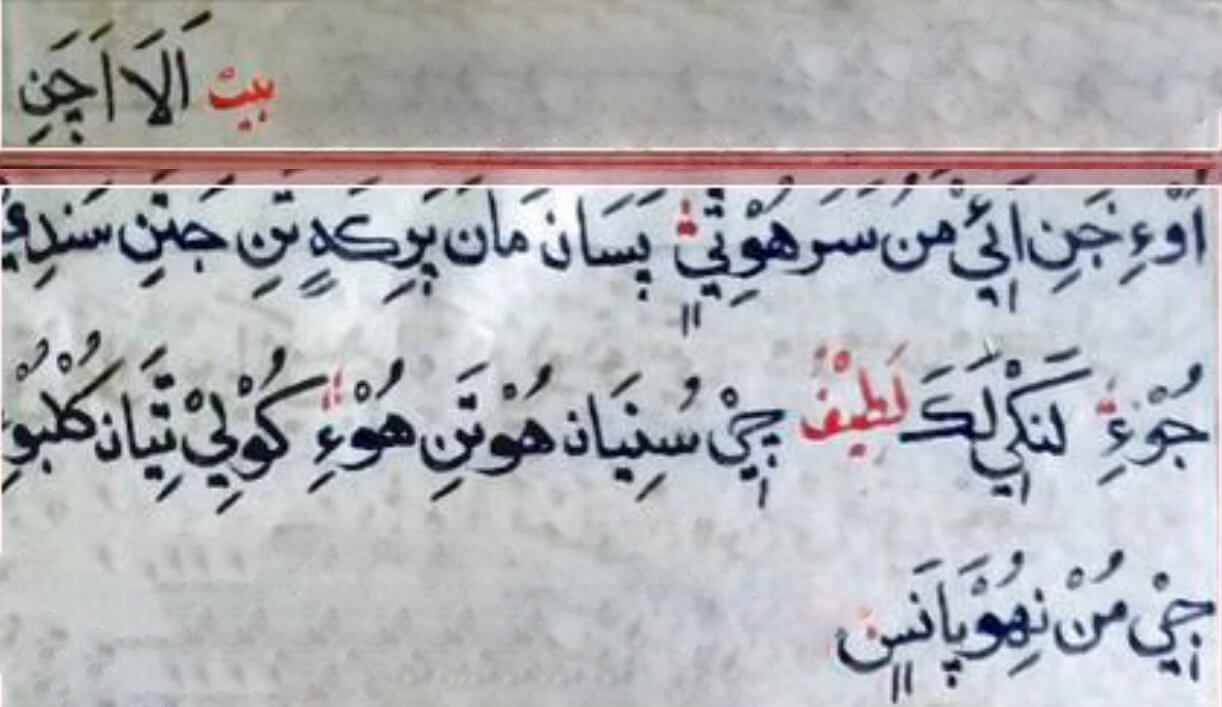 بيت اَلَا اَچَنِ
اَوْءِ جَنِ اَئِيْ مُنْ سَرَ هُوْتِيْ پَسَانۡ مَانۡ پَرِ کَهِ تَنِ جَتَنِ سَنْدِيْ
جُوْءِ لَنکِي لَکَ لَطِيْفُ چِيْ سُنِيَانۡ هُوْتَنِ هُوْءِ کُوْلِيْ تِيَانۡ کَلْبُوْءِ
جِيْ مُنْ نِهُوْ پَانَسِ